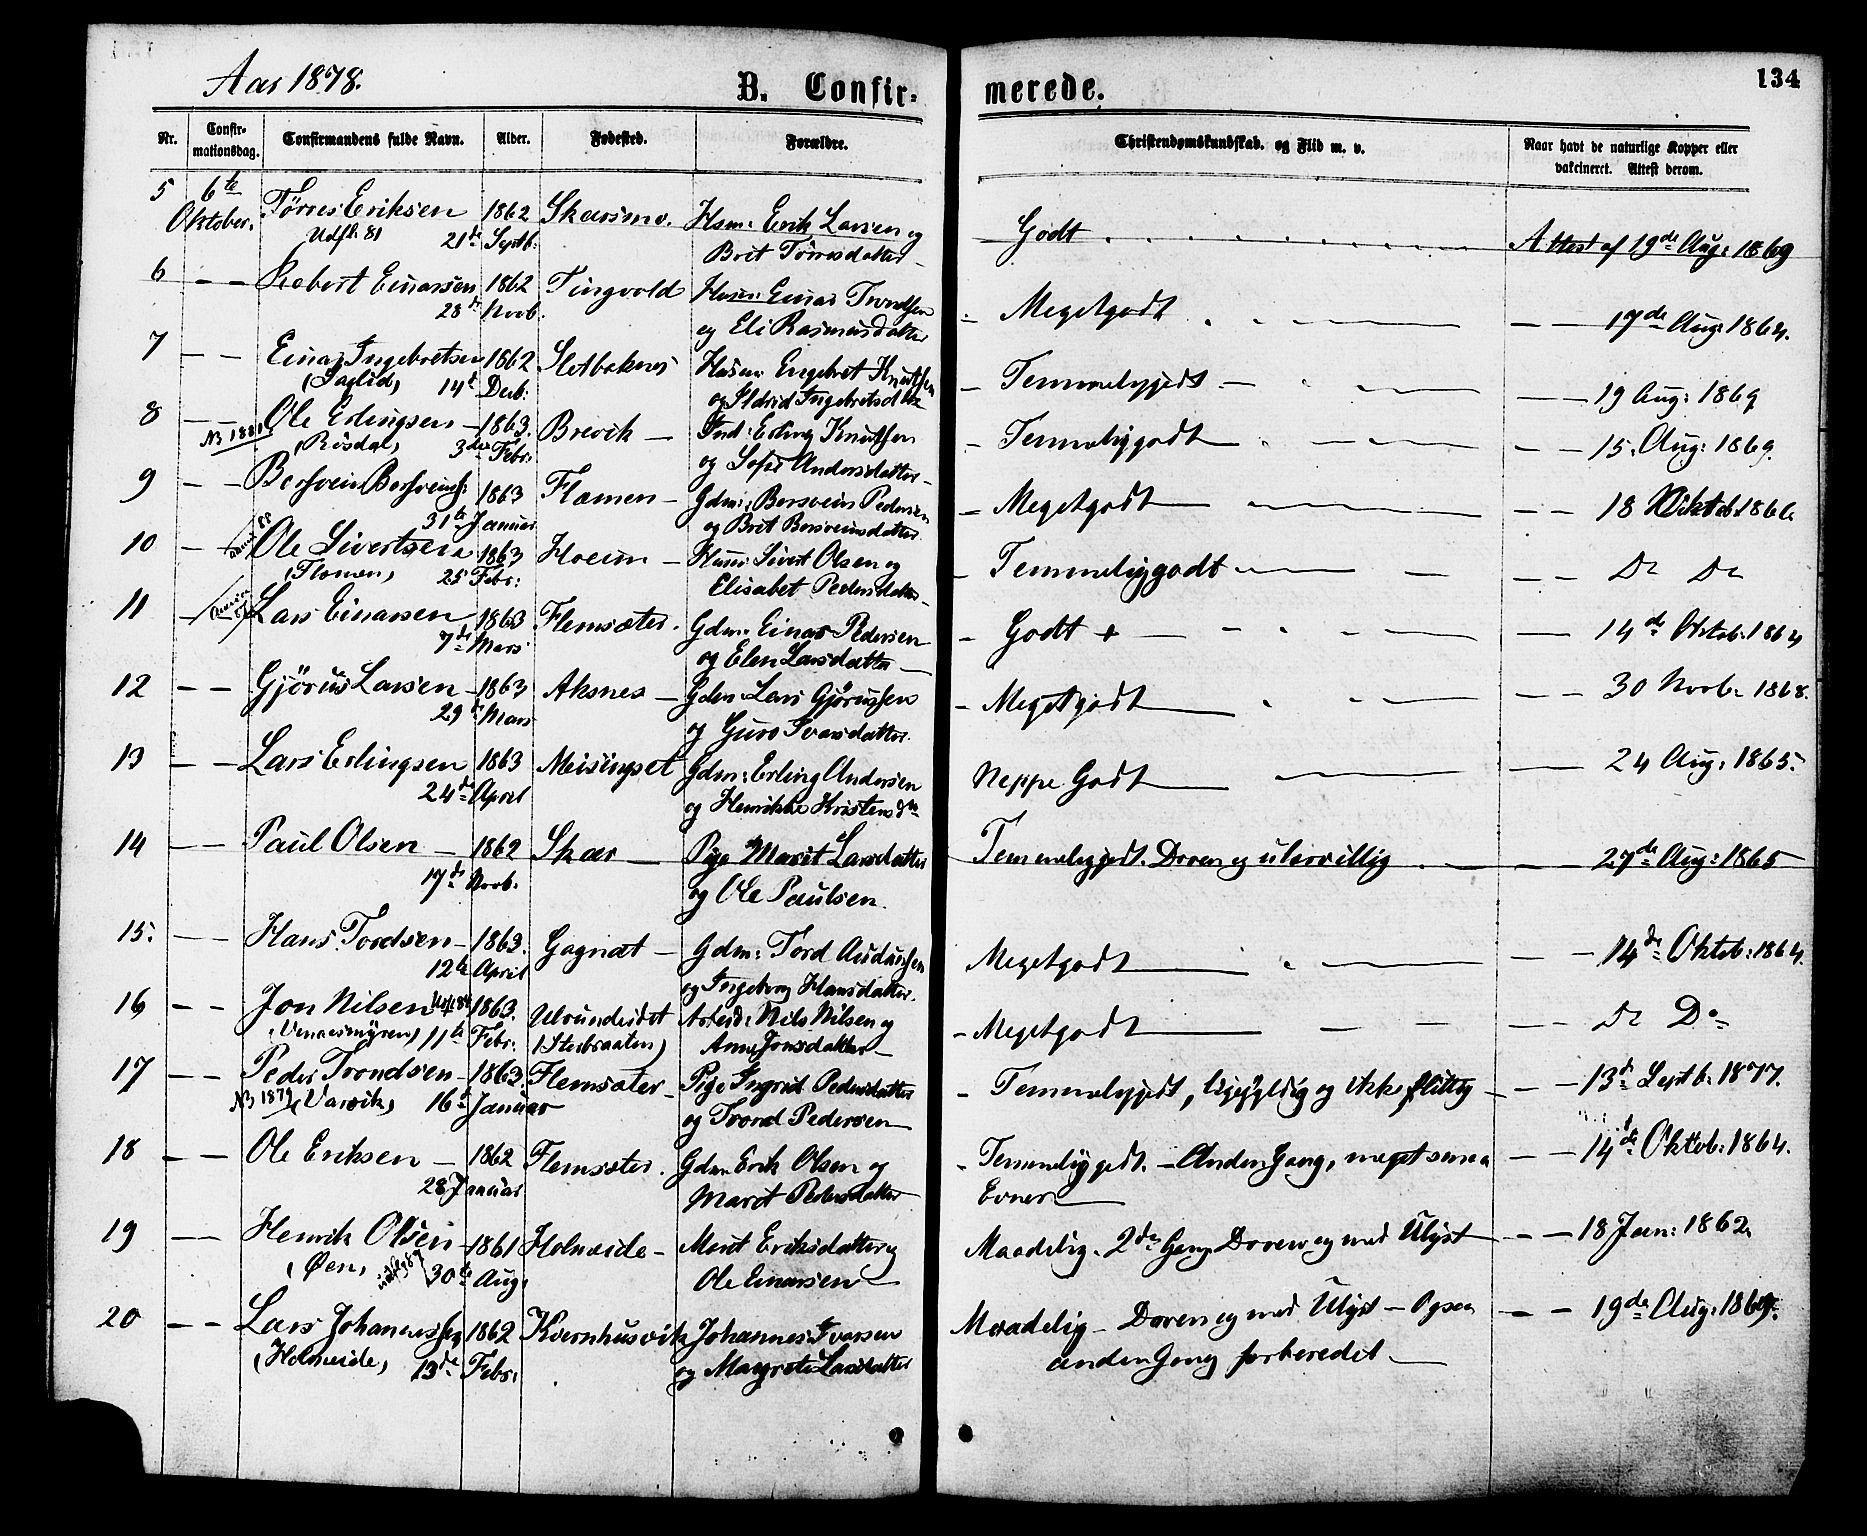 Aar 1878.
B. Confir-
merede.
134
Nr.
Confir-
mationsdag.
Confirmandens fulde Navn.
Alder.
Fødested.
Forældre.
Christendomskundskab. og Flid m. v.
Naar havt de naturlige Kopper eller
vakcineret. Attest derom.
5 6te Tørres Eriksen 1862 Husm: Erik Larsen og Godt Attest af 19de Aug: 1869
Oktober. Udfl. 81 21de Septb: Brit Tørresdatter
6 — — Einarsen 1862 Tingvold Husm: Einar Trondsen Megetgodt — — 17de Aug: 1864.
28de Novb. og Eli Rasmusdatter
7 — — Einar Ingebretsen 1862 Husm: Engebret Knutsen Temmeligodt — — 19 Aug: 1869
14de Decb: og Ildrid Ingebretsdatr
8 — Ole Erlingsen 1863. Brevik — Ind: Erling Knutsen Temmeligodt — — 15. Aug: 1869.
No 1881 (Rösdal) 3die Febr: og Sofie Andersdatter
9 — — Bersvein Bersveins: 1863 Flæmen — Gdm: Bersvein Pedersen Megetgodt — — 18
31te Januar og Brit Bersveinsdatter
10 — Ole Sivertsen 1863 Hoeim — Husm: Sivert Olsen og Temmeliggodt — — Do Do
(Flæmen) 25 Febr: Elisabet Pedersdatter
11 — Lars Einarsen 1863 Flemsæter. Gdm: Einar Pedersen Godt + — 14de Oktob: 1864
7de Mars og Elen Larsdatter
12 — — Gjørus Larsen 1863 Aksnes — Gdm: Lars Gjørussen Megetgodt — — 30 Novb. 1868.
29de Mars og Guro Ivarsdatter
13 — — Lars Erlingsen 1863 Meisingset Gdm: Erling Andersen Neppe Godt — 24 Aug: 1865.
24de April og Henrikke Kristensdtr
14 — — Paul Olsen — 1862 Skar — Pige Marit Larsdatter Temmeligodt. Doven og ulærvillig — — 27de Aug: 1865
17de Novb. og Ole Paulsen.
15. — — Hans Tordsen — 1863. Gagnat — Gdm: Tord Audunsen Megetgodt — — 14de Oktob: 1864.
12te April og Ingeborg Hansdatter.
16 — — Jon Nilsen 1863. Ulvundeidet Arbeid: Nils Nilsen og Megetgodt — — Do Do
11te Febr: Anne Jonsdatter
17 — — Peder Trondsen — 1863. Flemsæter — Pige Ingrid Pedersdatter Temmeligodt, ligegyldig og ikke flittig — — 13de Septb: 1877.
No 1879 (Varvik) 16de Januar og Trond Pedersen
18 — — Ole Eriksen — 1862 Flemsæter. Gdm: Erik Olsen og Temmeliggodt. — Anden Gang, meget smaa — — 14de Oktob: 1864.
28 Januar Marit Pedersdatter Evner
19 — — Henrik Olsen 1861 Holmeide — Marit Eriksdatter og Maadelig. 2den Gang Doven og med Ulyst — — 18 Jan: 1862.
(Øen) 30te Aug: Ole Einarsen
20 — — Lars Johannessen 1862 Kvernhusvik Johannes Ivarsen Maadelig — Doven og med Ulyst — Ogsaa — — 19de Aug: 1869.
(Holmeide) 13de Febr: og Margrete Larsdatter anden Gang forberedet